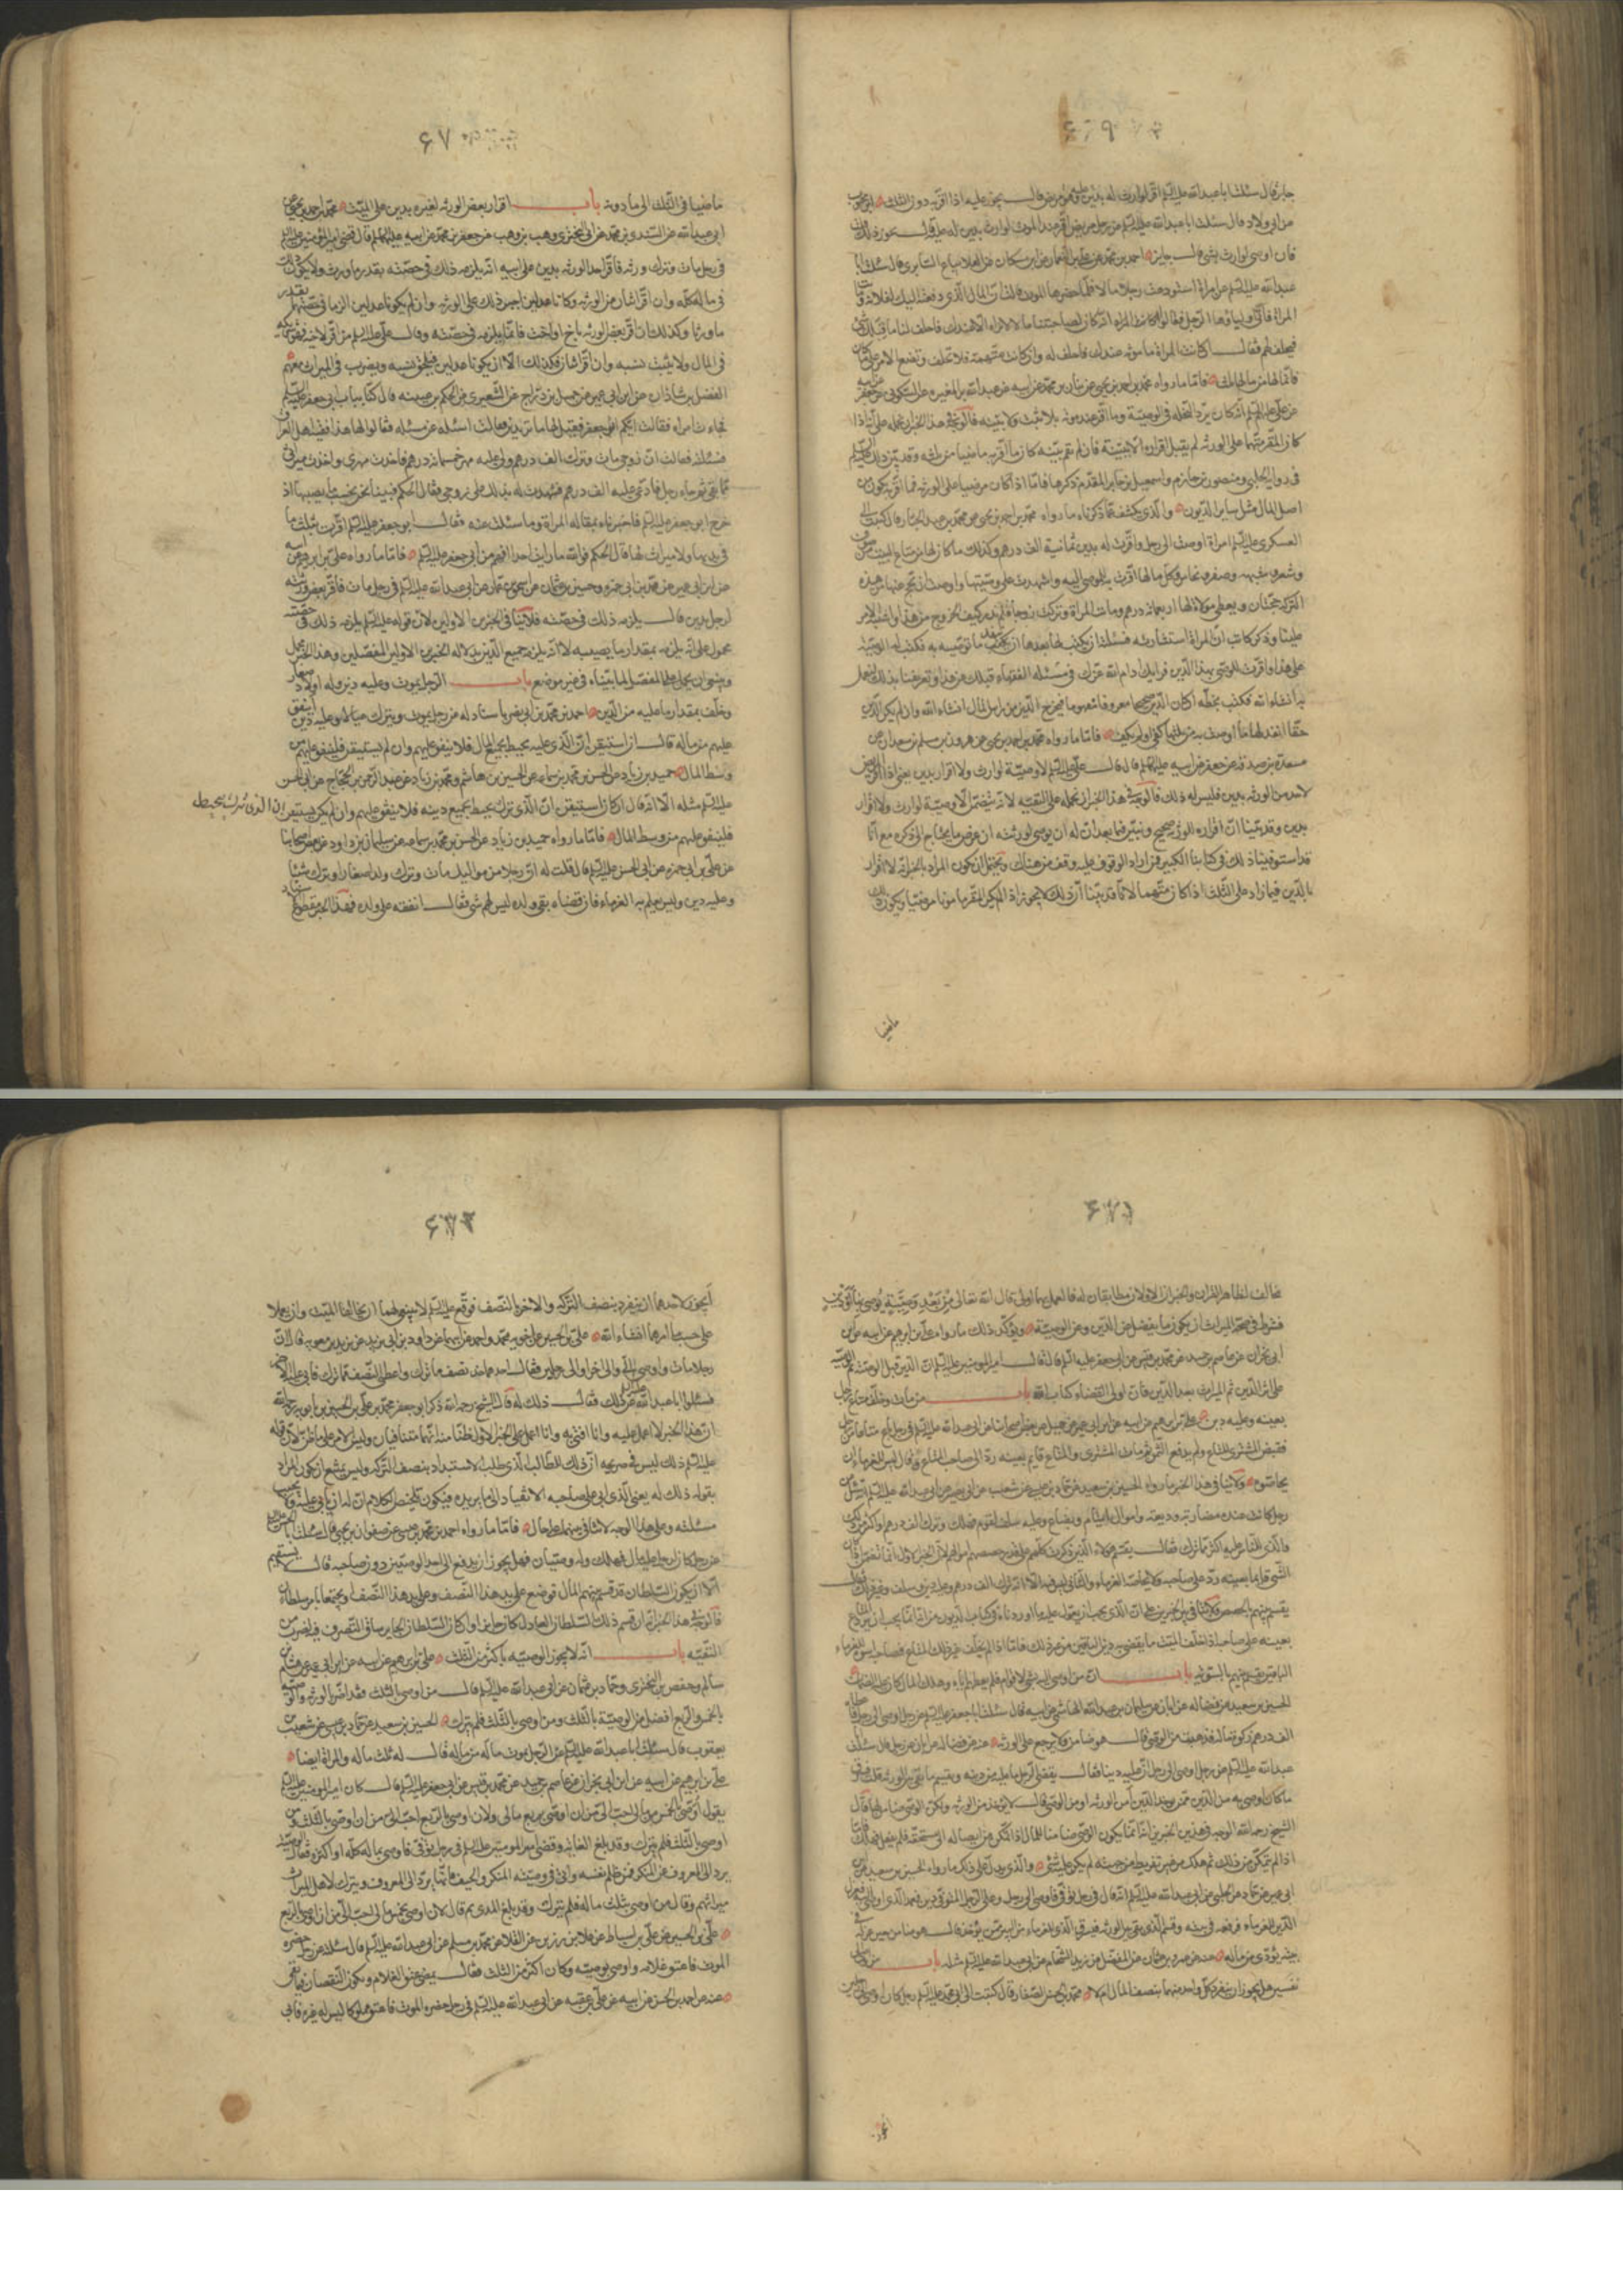 ۶۶۹
جابر قال سئلت ابا عبدالله عليه السلم اقر لوارث له بدين عليه وهو مريض قال يجوز عليه اذا اقر به دون الثلث
عن ابى ولاد قال سئلت ابا عبدالله عليه السلم عن رجل مريض اقر عند الموت لوارث بدين له عليه قال يجوز ذلك
فان اوصى لوارث بشئ قال جايز احمد بن محمد عن على بن النعمان عن ابن مسكان عن العلا بياع السابرى قال سئلت ابا
عبدالله عليه السلم عن امرأة استودعت رجلا مالا فلما حضرها الموت قالت له ان المال الذى دفعته اليك لفلانة وماتت
المراة فاتى اولياؤها الرجل فقالوا له كان لصاحبتنا مال لا نراه الا عندك فاحلف لنا ما قبلك شئ
فيحلف لهم فقال ان كانت المراة مامونة عنده فاحلف له وان كانت متهمة فلا تحلف وتضع الامر على ما كان
فانما لها من مالها ثلثه فاما ما رواه محمد بن احمد بن يحيى عن بنان بن محمد عن ابيه عن عبدالله بن المغيرة عن السكونى عن جعفر
عن على عليه السلم انه كان يرد النحلة فى الوصية وما اقر عند موته بلا ثبت ولا بينة فالوجه فى هذا الخبر ان نحمله على انه اذا
كان المقر متهما على الورثة لم يقبل اقراره الا ببينة فان لم تقم بينة كان ما اقر به ماضيا من ثلثه وقد بين ذلك
فى رواية الحلبى ومنصور بن حازم واسمعيل بن جابر المقدم ذكرها فاما اذا كان مرضيا على الورثة فما اقر به يكون من
اصل المال مثل سائر الديون والذى يكشف عما ذكرناه ما رواه محمد بن احمد بن يحيى عن محمد بن عبد الجبار قال كتبت الى
العسكرى عليه السلم امرأة اوصت الى رجل واقرت له بدين ثمانية الف درهم وكذلك ما كان لها من متاع البيت من صوف
وشعر وشبه وصفر ونحاس وكل ما لها اقرت به للموصى اليه واشهدت على وصيتها واوصت ان يحج عنها من هذه
التركة حجتان ويعطى مولاة لها اربعمائة درهم وماتت المراة وتركت زوجا فلم ندر كيف الخروج من هذا واشتبه الامر
علينا وذكر كاتب ان المراة استشارته فسئلته ان يكتب لها ما يصح لهذا الوصى فقال ما توصيه به فكتب له الوصية
حقا انفذ لها ما اوصت به من ثلثها كفى او لم يكف فاما ما رواه محمد بن احمد بن يحيى عن هرون بن مسلم عن ابن سعدان عن
مسعدة بن صدقة عن جعفر عن ابيه عليهما السلم قال قال على عليه السلم لا وصية لوارث ولا اقرار بدين يعنى اذا اقر المريض
لاحد من الورثة بدين فليس له ذلك فالوجه فى هذا الخبر ان نحمله على التقية لانه يتضمن الا وصية لوارث ولا اقرار
بالدين فيما زاد على الثلث اذا كان متهما لانا قد بينا ان ذلك لا يجوز اذا لم يكن المقر مامونا مرضيا ويكون ذلك
ماضيا
۶۷
ماضيا فى الثلث الى ما دونه باب اقرار بعض الورثة لغيره بدين على الميت محمد بن احمد بن يحيى عن
ابى عبدالله عن السندى بن محمد عن ابى البخترى وهب بن وهب عن جعفر بن محمد عن ابيه عليهما السلم قال قضى امير المؤمنين عليه السلم
فى رجل مات وترك ورثة فاقر احد الورثة بدين على ابيه انه يلزمه ذلك فى حصته بقدر ما ورث ولا يكون ذلك
فى ماله كله وان اقر اثنان من الورثة وكانا عدلين اجيز ذلك على الورثة وان لم يكونا عدلين الزما فى حصتهما بقدر
ما ورثا وكذلك ان اقر بعض الورثة باخ او اخت فانما يلزمه فى حصته وقال على عليه السلم من اقر لاخيه فهو شريك
فى المال ولا يثبت نسبه وان اقر اثنان فكذلك الا ان يكونا عدلين فيلحق نسبه ويضرب فى الميراث معهم
الفضل بن شاذان عن ابن ابى عمير عن جميل بن دراج عن الشعيرى عن الحكم بن عتيبة قال كنا بباب ابى جعفر عليه السلم
فجاءت امراة فقالت ايكم ابو جعفر فقيل لها ما تريدين فقالت اسئله عن مسئلة فقالوا لها هذا فقيه اهل العراق
فسئلته فقالت ان زوجى مات وترك الف درهم ولى عليه مهر خمسمائة درهم فاخذت مهرى واخذت ميراثى
مما بقى ثم جاء رجل فادعى عليه الف درهم فشهدت له بذلك على زوجى فقال الحكم فبينا نحن نحسب ما يصيبها اذ
خرج ابو جعفر عليه السلم فاخبرناه بمقالة المراة وما سئلت عنه فقال ابو جعفر عليه السلم اقرت بثلث ما
فى يديها ولا ميراث لها قال الحكم فوالله ما رايت احدا افهم من ابى جعفر عليه السلم فاما ما رواه على بن ابرهيم عن ابيه
عن ابن ابى عمير عن محمد بن ابى حمزه وحسين بن عثمان عن اسحق بن عمار عن ابى عبدالله عليه السلم فى رجل مات فاقر بعض ورثته
لرجل بدين قال يلزمه ذلك فى حصته فلا ينافى الخبرين الاولين لان قوله عليه السلم يلزمه ذلك فى حصته
محمول على انه يلزمه بمقدار ما يصيبه لا انه يلزمه جميع الدين بدلالة الخبرين الاولين المفصلين وهذا الخبر مجمل
وينبغى ان يحمل على المفصل لما بيناه فى غير موضع باب الرجل يموت وعليه دين وله اولاد صغار
وخلف بمقدار ما عليه من الدين احمد بن محمد بن ابى نصر باسناد له عن رجل يموت ويترك عيالا وعليه دين اينفق
عليهم من ماله قال ان استيقن ان الذى عليه يحيط بجميع المال فلا ينفق عليهم وان لم يستيقن فلينفق عليهم من
وسط المال حميد بن زياد عن الحسن بن محمد بن سماعه عن الحسين بن هاشم ومحمد بن زياد عن عبد الرحمن بن الحجاج عن ابى الحسن
عليه السلم مثله الا انه قال ان كان يستيقن ان الذى ترك يحيط بجميع دينه فلا ينفق عليهم وان لم يكن يستيقن
ان الذى ترك يحيط
فلينفق عليهم من وسط المال فاما ما رواه حميد بن زياد عن الحسن بن محمد بن سماعه عن سليمان بن داود عن بعض اصحابنا
عن على بن ابى حمزه عن ابى الحسن عليه السلم قال قلت له ان رجلا من مواليك مات وترك ولدا صغارا وترك شيئا
وعليه دين وليس يعلم به الغرماء فان قضاه بقى ولده ليس لهم شئ فقال انفقه على ولده فهذا الخبر مقطوع
۶۷۱
مخالف لظاهر القران والخبران الاولان مطابقان له فالعمل بهما اولى قال الله تعالى من بعد وصية يوصى بها او دين
فشرط فى صحة الميراث ان يكون ما يفضل عن الدين وعن الوصية ويؤكد ذلك ما رواه على بن ابرهيم عن ابيه عن ابن
ابى نجران عن عاصم بن حميد عن محمد بن قيس عن ابى جعفر عليه السلم قال قال امير المؤمنين عليه السلم ان الدين قبل الوصية ثم الوصية
على اثر الدين ثم الميراث بعد الدين فان اولى القضاء كتاب الله باب من مات وخلف متاع رجل
بعينه وعليه دين على بن ابرهيم عن ابيه عن ابن ابى عمير عن جميل عن بعض اصحابنا عن ابى عبدالله عليه السلم فى رجل باع متاعا من رجل
فقبض المشترى المتاع ولم يدفع الثمن ثم مات المشترى والمتاع قايم بعينه رد الى صاحب المتاع وقال ليس للغرماء ان
يحاصوه ولا ينافى هذا الخبر ما رواه الحسين بن سعيد عن حماد بن عيسى عن شعيب عن ابى بصير عن ابى عبدالله عليه السلم انه سئل عن
رجل كانت عنده مضاربة ووديعة واموال ايتام وبضايع وعليه سلف لقوم فهلك وترك الف درهم واكثر من ذلك
والذى للناس عليه اكثر مما ترك فقال يقسم لهؤلاء الذين ذكرت كلهم على قدر حصصهم اموالهم لان الخبر الاول انما تضمن ان
يقسم بينهم بالحصص
بعينه على صاحبه اذا خلف الميت ما يقضى به دين الباقين من غير ذلك فاما اذا لم يخلف غير ذلك المتاع فصاحبه اسوة للغرماء
باب ان من اوصى اليه بشئ لاقوام فلم يعطهم اياه وهلك المال كان عليه الضمان
الحسين بن سعيد عن فضاله عن ابان عن سليمان بن عبدالله الهاشمى عن ابيه قال سئلت ابا جعفر عليه السلم عن رجل اوصى الى رجل فاعطاه
الف درهم زكوة ماله فذهبت من الوصى قال هو ضامن ولا يرجع على الورثة عنه عن فضاله عن ابان عن رجل قال سئلت
عبدالله عليه السلم عن رجل اوصى الى رجل ان عليه دينا فقال يقضى الرجل ما عليه من دينه ويقسم ما بقى بين الورثة قلت فسرق
ما كان اوصى به من الدين ممن يوخذ الدين امن الورثة او من الوصى قال لا يوخذ من الورثة ولكن الوصى ضامن لها قال
الشيخ رحمه الله الوجه فى هذين الخبرين انه انما يكون الوصى ضامنا للمال اذا تمكن من ايصاله الى مستحقه فلم يفعل فهلك فاما
اذا لم يتمكن من ذلك ثم هلك من غير تفريط من جهته لم يكن عليه شئ والذى يدل على ذلك ما رواه الحسين بن سعيد عن
ابى عمير عن حماد عن الحلبى عن ابى عبدالله عليه السلم انه قال فى رجل توفى فاوصى الى رجل وعلى الرجل المتوفى دين فعمد الذى اوصى اليه فعزل
الذى للغرماء فرفعه فى بيته وقسم الذى بقى بين الورثة فسرق الذى للغرماء من الليل ممن يؤخذ قال هو ضامن حين عزله فى
بيته يؤدى من ماله عنه عن عمرو بن عثمان عن المفضل عن زيد الشحام عن ابى عبدالله عليه السلم مثله باب من اوصى الى
نفسين هل يجوز ان ينفرد كل واحد منهما بنصف المال ام لا محمد بن الحسن الصفار قال كتبت الى ابى محمد عليه السلم رجل كان اوصى الى رجلين
ايجوز
۶۷۲
ايجوز لاحدهما ان ينفرد بنصف التركة والاخر بالنصف فوقع عليه السلم لا ينبغى لهما ان يخالفا الميت وان يعملا
على حسب ما امرهما انشاء الله على بن الحسين عن اخويه محمد واحمد عن ابيهما عن داود بن ابى يزيد عن بريد بن معويه قال ان
رجلا مات واوصى الى والى اخر او الى رجلين فقال احدهما خذ نصف ما ترك واعطنى النصف مما ترك فابى عليه الاخر
فسئلوا ابا عبدالله عليه السلم عن ذلك فقال ذلك له قال الشيخ رحمه الله ذكر ابو جعفر محمد بن على بن الحسين بن بابويه رحمه الله
ان هذا الخبر لا اعمل عليه ولا افتى به وانا اعمل على الخبر الاول ظنا منه انهما متنافيان وليس الامر على ما ظن لان قوله
عليه السلم ذلك له ليس فى صريحه ان ذلك للطالب الذى طلب الاستبداد بنصف التركة وليس يمتنع ان يكون المراد
بقوله ذلك له يعنى الذى ابى على صاحبه الانقياد الى ما يريده فيكون تلخيص الكلام ان له ان يابى عليه ولا يجيب
مسئلته وعلى هذا الوجه لا تنافى بينهما على حال فاما ما رواه احمد بن محمد بن عيسى عن صفوان بن يحيى قال سئلت ابا الحسن عليه السلم
عن رجل كان لرجل عليه مال فهلك وله وصيان فهل يجوز ان يدفع الى احد الوصيين دون صاحبه قال لا يستقيم
الا ان يكون السلطان قد قسم بينهم المال فوضع على يد هذا النصف وعلى يد هذا النصف او يجتمعان بامر سلطان
فالوجه فى هذا الخبر انه ان قسم ذلك السلطان العادل كان جايزا وان كان السلطان الجاير ساغ التصرف فيه لضرب من
التقية باب انه لا يجوز الوصية باكثر من الثلث على بن ابرهيم عن ابيه عن ابن ابى عمير عن هشام بن
سالم وحفص بن البخترى وحماد بن عثمان عن ابى عبدالله عليه السلم قال من اوصى بالثلث فقد اضر بالورثة والوصية
بالخمس والربع افضل من الوصية بالثلث ومن اوصى بالثلث فلم يترك الحسين بن سعيد عن حماد بن عيسى عن شعيب بن
يعقوب قال سئلت ابا عبدالله عليه السلم عن الرجل يموت ماله من ماله قال له ثلث ماله والمراة ايضا
على بن ابرهيم عن ابيه عن ابن ابى نجران عن عاصم بن حميد عن محمد بن قيس عن ابى جعفر عليه السلم قال كان امير المؤمنين عليه السلم
يقول لئن اوصى بخمس مالى احب الى من ان اوصى بربع مالى ولان اوصى بالربع احب الى من ان اوصى بالثلث ومن
اوصى بالثلث فلم يترك وقد بلغ الغاية وقضى امير المومنين عليه السلم فى رجل توفى فاوصى بماله كله او اكثره فقال ان الوصية
يرد الى المعروف عن المنكر فمن ظلم نفسه واتى فى وصيته المنكر والحيف فانها يرد الى المعروف ويترك لاهل الميراث
ميراثهم وقال من اوصى بثلث ماله فلم يترك وقد بلغ المدى ثم قال لان اوصى بخمس مالى احب الى من ان اوصى بالربع
على بن الحسين عن على بن اسباط عن علا بن رزين القلا عن محمد بن مسلم عن ابى عبدالله عليه السلم قال سئلته عن رجل حضره
الموت فاعتق غلامه واوصى بوصيته وكان اكثر من الثلث فقال يمضى عتق الغلام ويكون النقصان فيما بقى
عنه عن احمد بن الحسن عن ابيه عن على بن عقبه عن ابى عبدالله عليه السلم فى رجل حضره الموت فاعتق مملوكا ليس له غيره فابى